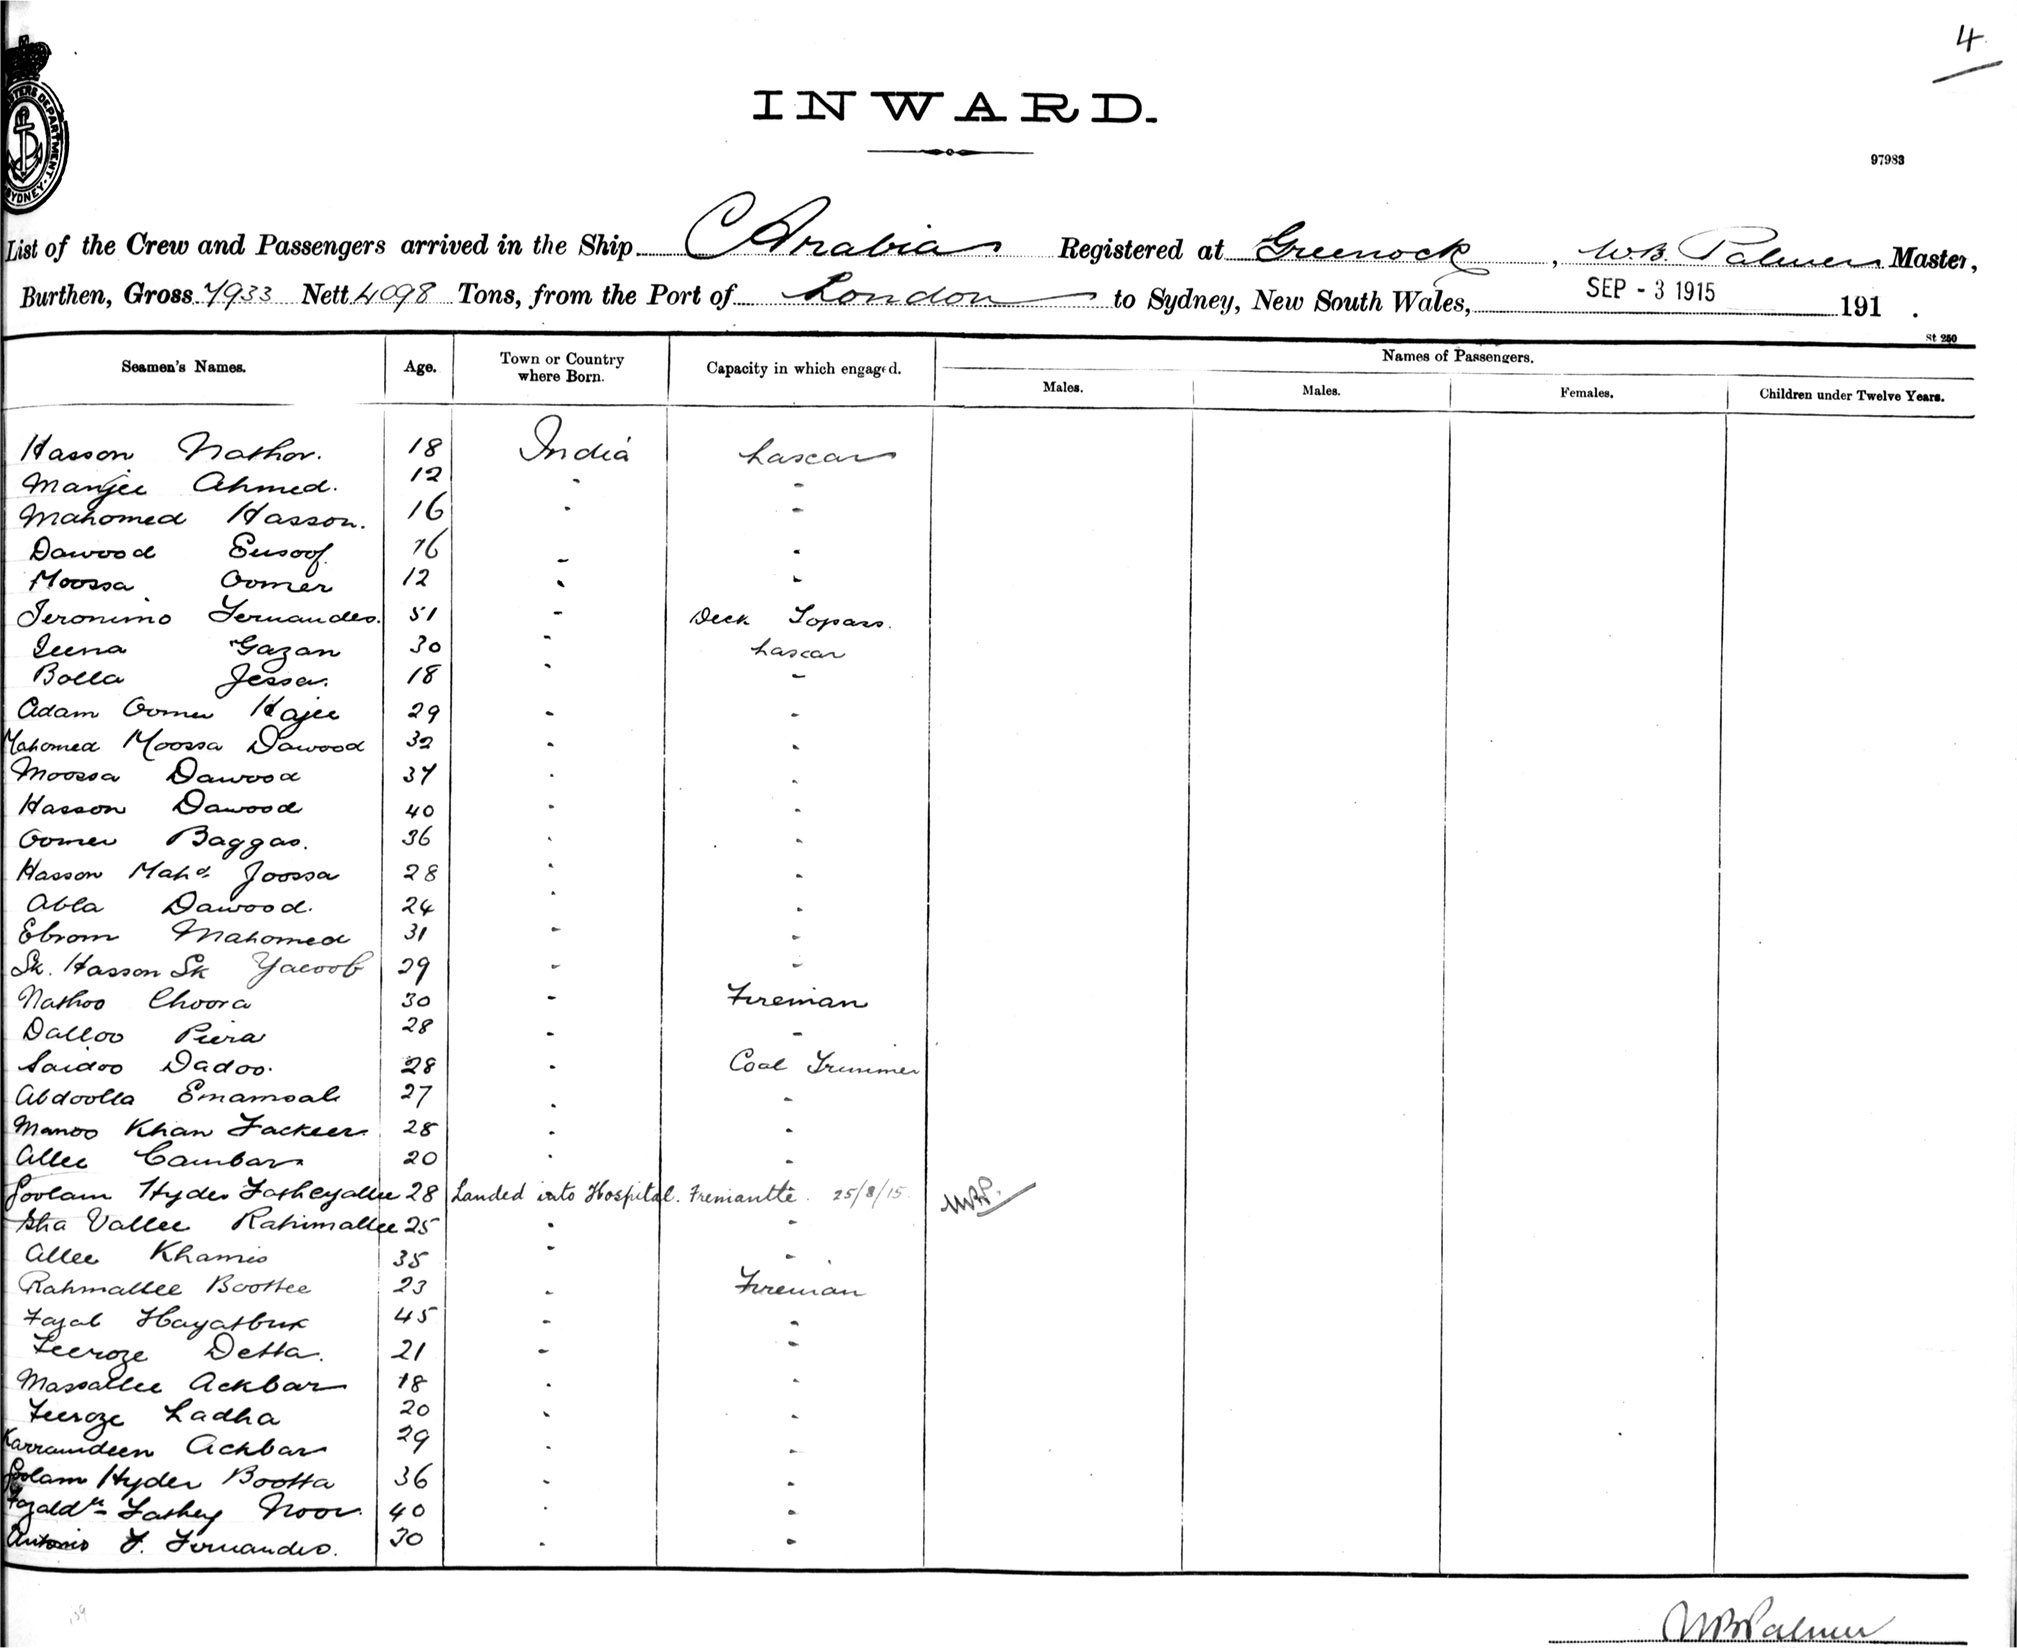 4
INWARD.
97983
List of the Crew and Passengers arrived in the Ship Arabia Registered at Greenock, W.B. Palmer Master,
Burthen, Gross 7933 Nett 4098 Tons, from the Port of London to Sydney, New South Wales, SEP - 3 1915 191 .
St 250
Seamen's Names. Age. Town or Country where Born. Capacity in which engaged. Names of Passengers.
Males. Males. Females. Children under Twelve Years.
Hasson Nathor. 18 India Lascar
Manjee Ahmed. 12 " "
Mahomed Hasson. 16 " "
Dawood Eusoof 16 " "
Moossa Oomer 12 " "
Jeronimo Fernandes. 51 " Deck Topass.
Jeena Gazan 30 " Lascar
Bolla Jessa. 18 " "
Adam Oomer Hajee 29 " "
Mahomed Moossa Dawood 32 " "
Moossa Dawood 37 " "
Hasson Dawood 40 " "
Oomer Baggas. 36 " "
Hasson Mahd Joossa 28 " "
Abla Dawood. 24 " "
Ebrom Mahomed 31 " "
Sk. Hasson Sk Yacoob 29 " "
Nathoo Choora 30 " Fireman
Dalloo Piera 28 " "
Saidoo Dadoo. 28 " Coal Trimmer
Abdoolla Emamoali 27 " "
Manoo Khan Fackeer 28 " "
Allee Cambar 20 " "
Goolam Hyder Fatheyallee 28 Landed into Hospital. Fremantle 25/8/15. WBP.
Sha Vallee Rahimallee 25 " "
Allee Khamis 35 " "
Rahmallee Boottee 23 " Fireman
Fazal Hayatbux 45 " "
Feeroze Detta. 21 " "
Massallee Ackbar 18 " "
Feeroze Ladha 20 " "
Karramdeen Ackbar 29 " "
Goolam Hyder Bootta 36 " "
Fazaldn Fathey Noor. 40 " "
Antonio F. Fernandes. 30 " "
WB Palmer